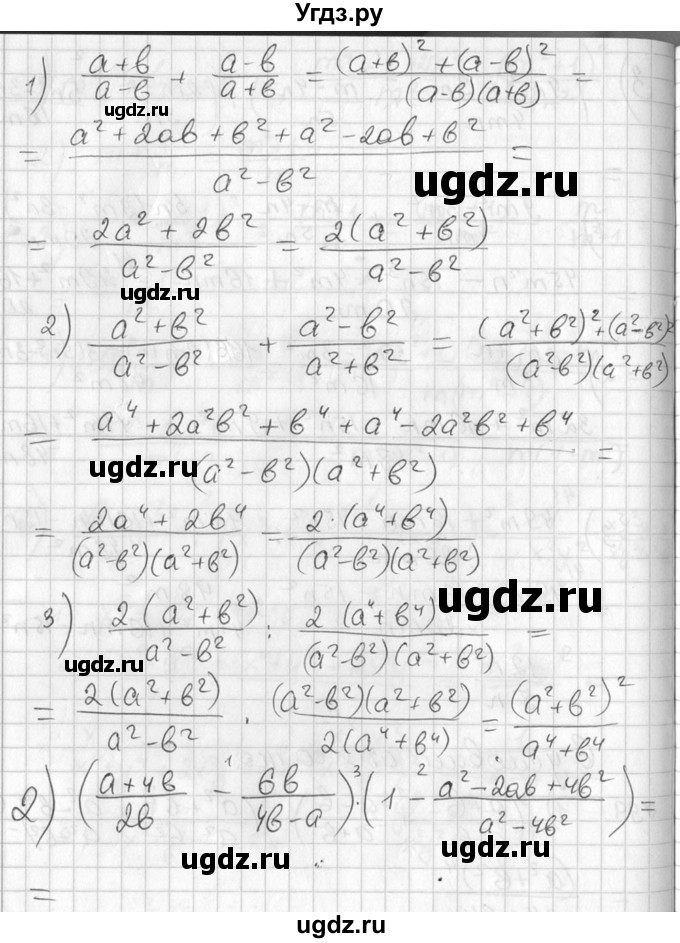 Угдз.ру
1) (a+в)/(a-в) + (a-в)/(a+в) = ((a+в)² + (a-в)²)/((a-в)(a+в)) =
ugdz.ru
= (a² + 2aв + в² + a² - 2aв + в²)/(a² - в²) =
ugdz.ru
= (2a² + 2в²)/(a² - в²) = 2(a² + в²)/(a² - в²)
ugdz.ru
2) (a² + в²)/(a² - в²) + (a² - в²)/(a² + в²) = ((a² + в²)² + (a² - в²)²)/((a² - в²)(a² + в²))
= (a⁴ + 2a²в² + в⁴ + a⁴ - 2a²в² + в⁴)/((a² - в²)(a² + в²)) =
ugdz.ru
= (2a⁴ + 2в⁴)/((a² - в²)(a² + в²)) = 2·(a⁴ + в⁴)/((a² - в²)(a² + в²))
ugdz.ru
3) 2(a² + в²)/(a² - в²) : 2(a⁴ + в⁴)/((a² - в²)(a² + в²)) =
ugdz.ru
= 2(a² + в²)/(a² - в²) · (a² - в²)(a² + в²)/(2(a⁴ + в⁴)) = (a² + в²)²/(a⁴ + в⁴)
2) ((a + 4в)/(2в) -¹ 6в/(4в - a)) :³ (1 -² (a² - 2aв + 4в²)/(a² - 4в²)) =
ugdz.ru
ugdz.ru
=
ugdz.ru